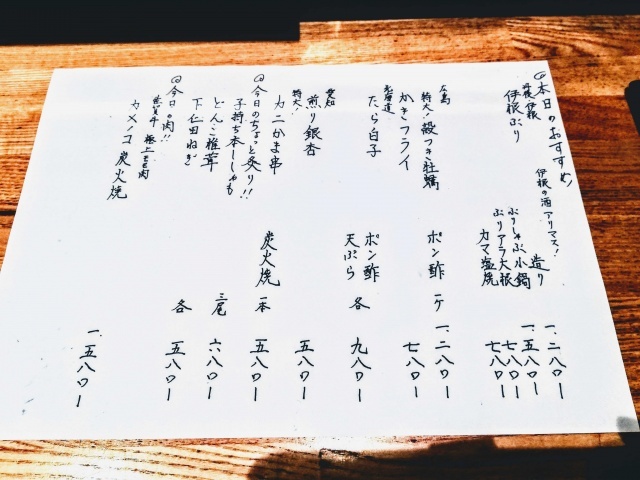 ◎本日のおすすめ
伊根の酒アリマス!
丹後・伊根
伊根ぶり 造り 一、二八〇ー
ぶりしゃぶ小鍋 一、五八〇ー
ぶりアラ大根 七八〇ー
カマ塩焼 七八〇ー
広島
特大!殻つき牡蠣 ポン酢 一ケ 一、二八〇ー
かきフライ 七八〇ー
北海道
たら白子 ポン酢 天ぷら 各 九八〇ー
愛知
特大!煎り銀杏 五八〇ー
カニかま串 炭火焼 一本 五八〇ー
◎今日のちょっと炙り!!
子持ち本ししゃも 三尾 六八〇ー
どんこ椎茸
下仁田ねぎ 各 五八〇ー
◎今日の肉!!
極上もも肉
カメノコ 炭火焼 一、五八〇ー